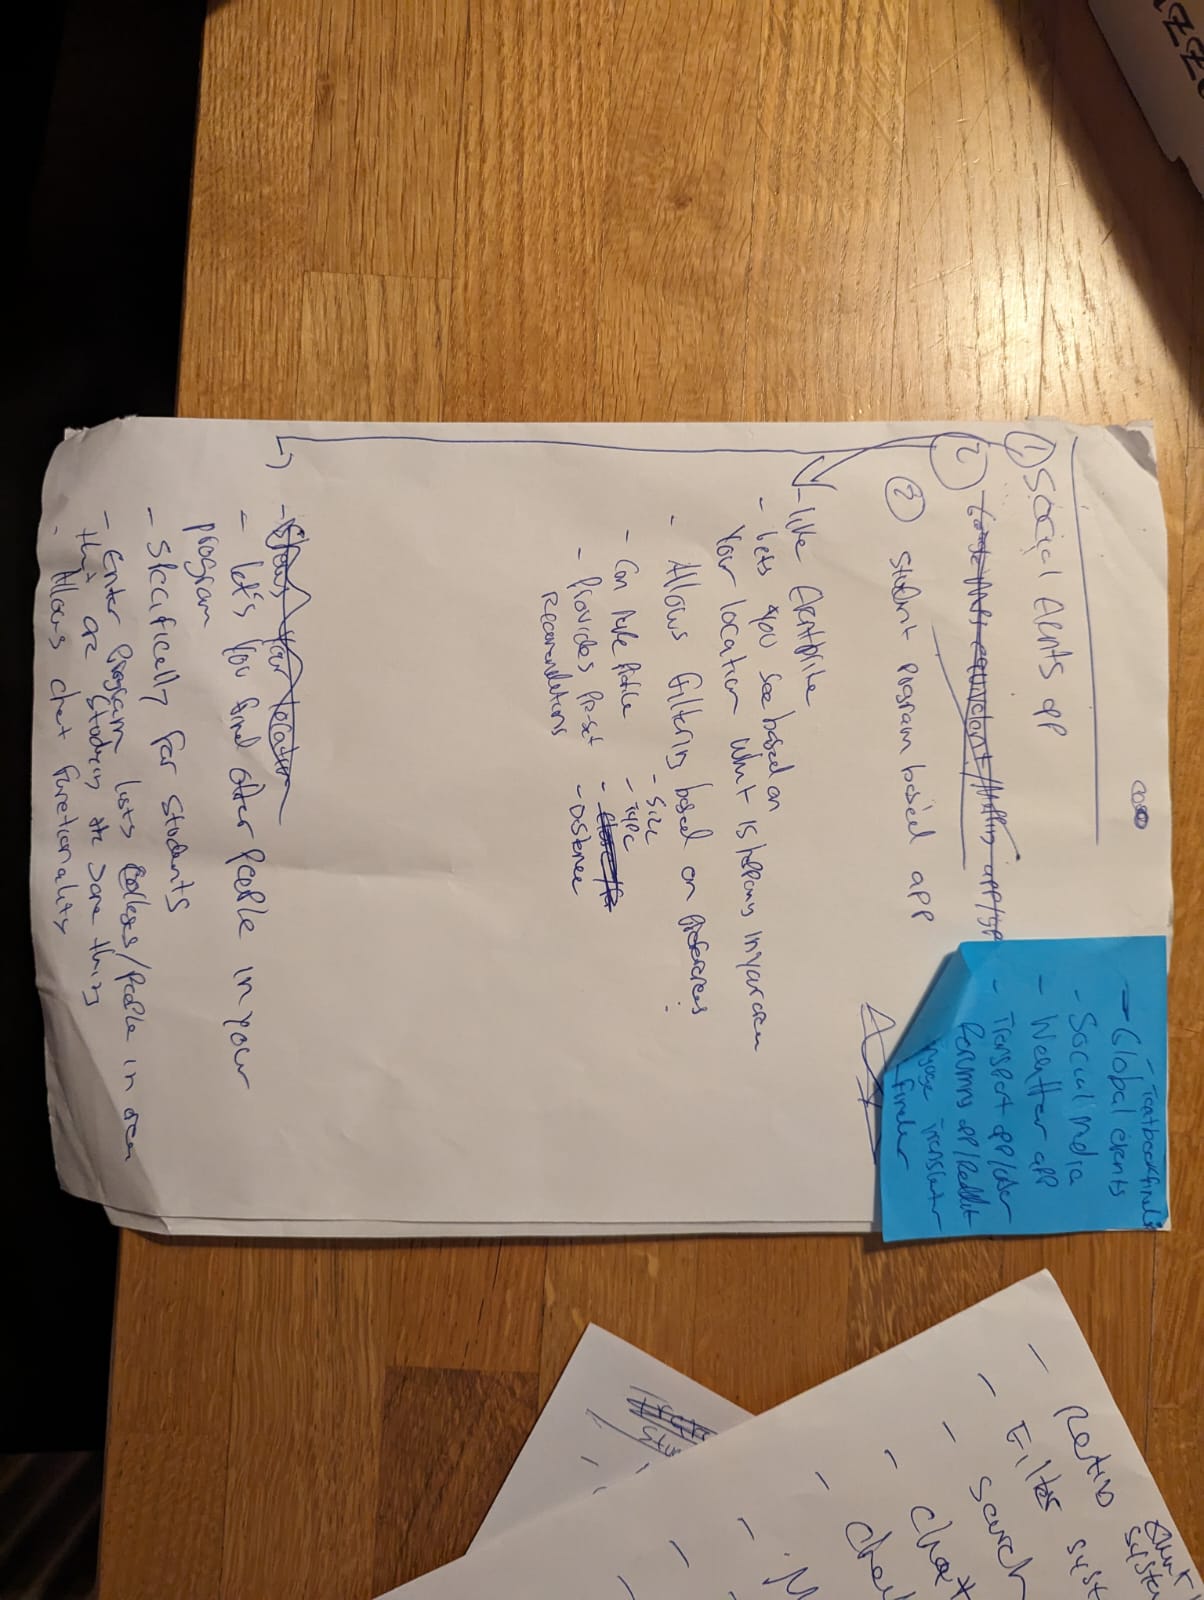 ① Social Events app
②
② student program based app
- like Eventbrite
- Lets you see based on
your location what is happening in your area
- Allows filtering based on preferences
- Size
- Type
- Distance
- Can make profile
- Provides Preset
Recommendations
- Shows your location
- let's you find other people in your
program
- Specifically for students
- Enter program lists colleges/people in area
that are studying the same thing
- Allows chat functionality
- Textbook finder
→ Global events
- Social Media
- Weather app
- Transport app/uber
forums app/Reddit
translator
finder
- Filter syst
- Search
- Chat